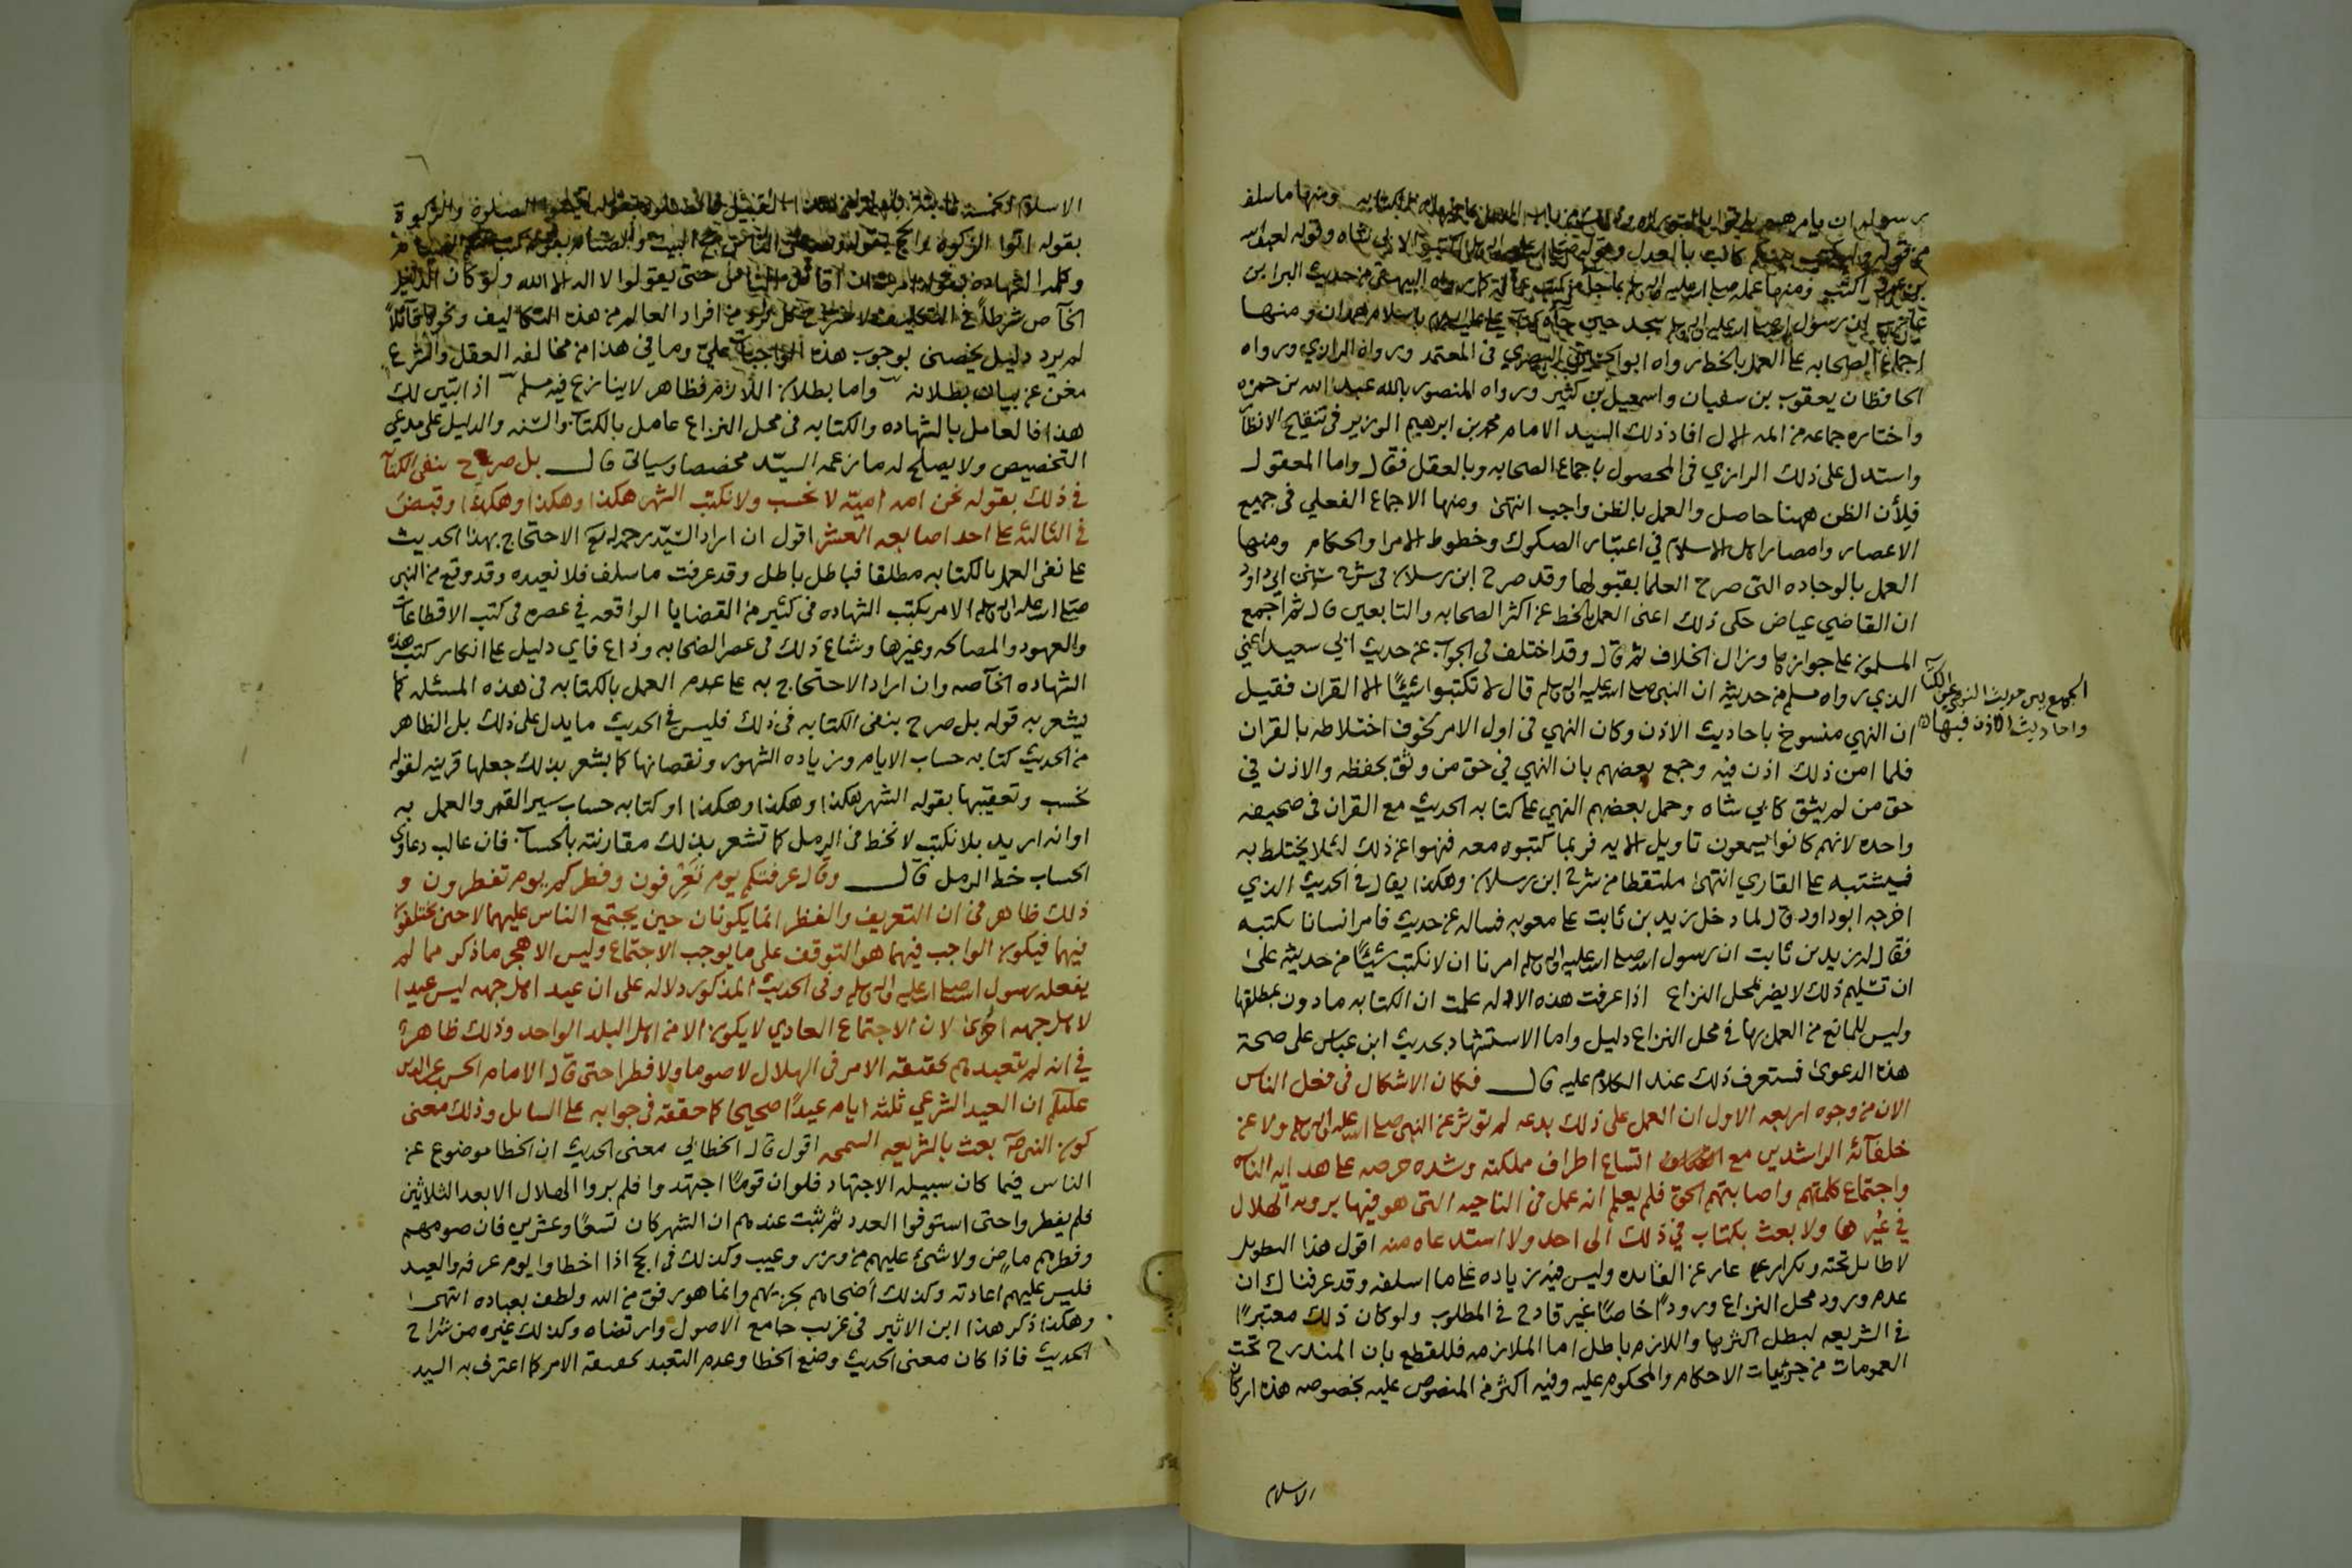 برسوله ان يامرهم ومنها ما سلف
من قوله وليكتب بينكم كاتب بالعدل وقوله صلى الله عليه واله وسلم اكتبوا لابي شاه وقوله لعبد الله
بن عمرو اكتب ومنها عمله صلى الله عليه واله وسلم كما رواه البيهقي من حديث البرا بن
عازب ان رسول الله صلى الله عليه واله وسلم سجد حين جاه كتاب علي عليه السلام باسلام همدان ومنها
اجماع الصحابه على العمل بالخط رواه ابو الحسين البصري في المعتمد ورواه الرازي ورواه
الحافظان يعقوب بن سفيان واسمعيل بن كثير ورواه المنصور بالله عبد الله بن حمزه
واختاره جماعه من ائمه الال افاد ذلك السيد الامام محمد بن ابرهيم الوزير في تنقيح الانظار
واستدل على ذلك الرازي في المحصول باجماع الصحابه وبالعقل فقال واما المعقول
فلأن الظن ههنا حاصل والعمل بالظن واجب انتهى ومنها الاجماع الفعلي في جميع
الاعصار وامصار اهل الاسلام في اعتبار الصكوك وخطوط الامرا والحكام ومنها
العمل بالوجاده التى صرح العلما بقبولها وقد صرح ابن رسلان في شرح سنن ابي داود
ان القاضي عياض حكى ذلك اعنى العمل بالخط عن اكثر الصحابه والتابعين قال ثم اجمع
المسلمون على جوازها وزال الخلاف ثم قال وقد اختلف في الجواب عن حديث ابي سعيد اعني
الذي رواه مسلم من حديثه ان النبي صلى الله عليه واله وسلم قال لا تكتبوا شيئًا الا القران فقيل
ان النهي منسوخ باحاديث الاذن وكان النهي في اول الامر لخوف اختلاطه بالقران
الجمع بين حديث النهي عن الكتابه
واحاديث الاذن فيها
فلما امن ذلك اذن فيه وجمع بعضهم بان النهي في حق من وثق بحفظه والاذن في
حق من لم يثق كابي شاه وحمل بعضهم النهي على كتابه الحديث مع القران في صحيفه
واحده لانهم كانوا يسمعون تاويل الايه فربما كتبوه معه فنهوا عن ذلك لئلا يختلط به
فيشتبه على القاري انتهى ملتقطا من شرح ابن رسلان وهكذا يقال في الحديث الذي
اخرجه ابو داود قال لما دخل زيد بن ثابت على معويه فساله عن حديث فامر انسانا يكتبه
فقال له زيد بن ثابت ان رسول الله صلى الله عليه واله وسلم امرنا ان لا نكتب شيئًا من حديثه على
ان تسليم ذلك لا يضر بمحل النزاع اذا عرفت هذه الادله علمت ان الكتابه مادون بمطلقها
وليس للمانع من العمل بها في محل النزاع دليل واما الاستشهاد بحديث ابن عباس على صحة
هذه الدعوى فستعرف ذلك عند الكلام عليه قال فكان الاشكال في فعل الناس
الان من وجوه اربعه الاول ان العمل على ذلك بدعه لم تؤثر عن النبي صلى الله عليه واله وسلم ولا عن
خلفآئه الراشدين مع اتساع اطراف مملكته وشده حرصه على هدايه الناس
واجتماع كلمتهم واصابتهم الحق فلم يعلم انه عمل في الناحيه التى هو فيها برويه الهلال
في غيرها ولا بعث بكتاب في ذلك الى احد ولا استدعاه منه اقول هذا التطويل
لا طائل تحته وتكرار عار عن الفائده وليس فيه زياده على ما اسلفه وقد عرفناك ان
عدم ورود محل النزاع ورودًا خاصًا غير قادح في المطلوب ولو كان ذلك معتبرًا
في الشريعه لبطل اكثرها واللازم باطل اما الملازمه فللقطع بان المندرج تحت
العمومات من جزئيات الاحكام والمحكوم عليه وفيه اكثر من المنصوص عليه بخصوصه هذه اركان
الاسلام
الاسلام الخمسة والصلوة والزكوة
بقوله اتوا الزكوة والحج بقوله ولله على الناس حج البيت والصيام بقوله كتب عليكم الصيام
وكلمه الشهاده بقوله امرت ان اقاتل الناس حتى يقولوا لا اله الا الله ولو كان الدليل
الخآص شرطًا في التكليف من افراد العالم من هذه التكاليف ونحوها قائلًا
لم يرد دليل يخصنى بوجوب هذه الواجبات علي وما في هذا من مخالفه العقل والشرع
مغن عن بيان بطلانه واما بطلان اللازم فظاهر لا ينازع فيه مسلم اذا تبين لك
هذا فالعامل بالشهاده والكتابه في محل النزاع عامل بالكتاب والسنه والدليل على مدعي
التخصيص ولا يصلح له ما زعمه السيد مخصصا وسياتي قال بل صرح بنفي الكتابه
في ذلك بقوله نحن امه اميّه لا نحسب ولا نكتب الشهر هكذا وهكذا وهكذا وقبض
في الثالثه على احد اصابعه العشر اقول ان اراد السيد رحمه الله الاحتجاج بهذا الحديث
على نفي العمل بالكتابه مطلقا فباطل باطل وقد عرفت ما سلف فلا نعيده وقد وقع من النبي
صلى الله عليه واله وسلم الامر بكتب الشهاده في كثير من القضايا الواقعه في عصره في كتب الاقطاعات
والعهود والمصالحه وغيرها وشاع ذلك في عصر الصحابه وذاع فاي دليل على انكار كتب هذه
الشهاده الخآصه وان اراد الاحتجاج به على عدم العمل بالكتابه في هذه المسئله كما
يشعر به قوله بل صرح بنفي الكتابه في ذلك فليس في الحديث ما يدل على ذلك بل الظاهر
من الحديث كتابه حساب الايام وزياده الشهور ونقصانها كما يشعر بذلك جعلها قرينه لقوله
نحسب وتعقيبها بقوله الشهر هكذا وهكذا وهكذا او كتابه حساب سير القمر والعمل به
او انه اريد بلا نكتب لا نخط في الرمل كما تشعر بذلك مقارنته بالحساب فان غالب دعاوى
الحساب خط الرمل قال وقال عرفتكم يوم تعرفون وفطركم يوم تفطرون و
ذلك ظاهر في ان التعريف والفطر انما يكونان حين يجتمع الناس عليهما لا حين يختلفون
فيهما فيكون الواجب فيهما هو التوقف على ما يوجب الاجتماع وليس الا هجر ما ذكر مما لم
يفعله رسول الله صلى الله عليه واله وسلم وفي الحديث المذكور دلاله على ان عيد اهل جهه ليس عيدا
لاهل جهه اخرى لان الاجتماع العادي لا يكون الا من اهل البلد الواحد وذلك ظاهر
في انه لم يتعبدهم بحقيقه الامر في الهلال لا صوما ولا فطرا حتى قال الامام الحسن عز الدين
عليكم ان العيد الشرعي ثلثه ايام عيدًا صحيحا كما حققه في جوابه على السائل وذلك معنى
كون النبي بعث بالشريعه السمحه اقول قال الخطابي معنى الحديث ان الخطا موضوع عن
الناس فيما كان سبيله الاجتهاد فلو ان قومًا اجتهدوا فلم يروا الهلال الا بعد الثلاثين
فلم يفطروا حتى استوفوا العدد ثم ثبت عندهم ان الشهر كان تسعًا وعشرين فان صومهم
وفطرهم ماض ولا شيء عليهم من وزر وعيب وكذلك في الحج اذا اخطاوا يوم عرفه والعيد
فليس عليهم اعادته وكذلك أضحاهم يجزيهم وانما هو رفق من الله ولطف بعباده انتهى
وهكذا ذكر هذا ابن الاثير في غريب جامع الاصول وارتضاه وكذلك غيره من شراح
الحديث فاذا كان معنى الحديث وضع الخطا وعدم التعبد بحقيقه الامر كما اعترف به السيد